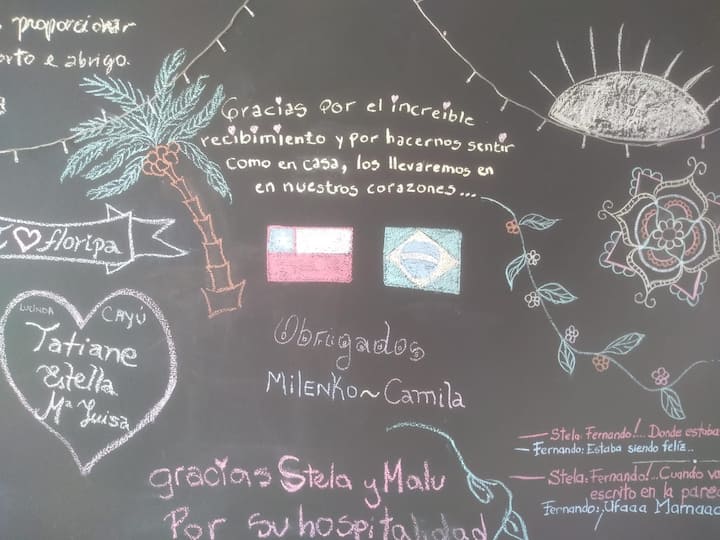 proporcionar
e abrigo.
Gracias por el increible
recibimiento y por hacernos sentir
como en casa, los llevaremos en
en nuestros corazones...
floripa
LUCINDA CAYÚ
Tatiane
Estella
Mª Luisa
Obrigados
Milenko ~ Camila
gracias Stela y Malu
Por su hospitalidad
- Stela: Fernando!... Donde estaba
- Fernando: Estaba siendo feliz..
- Stela: Fernando!...Cuando va
escrito en la pared
Fernando: ¡Ufaaa Mamaaa